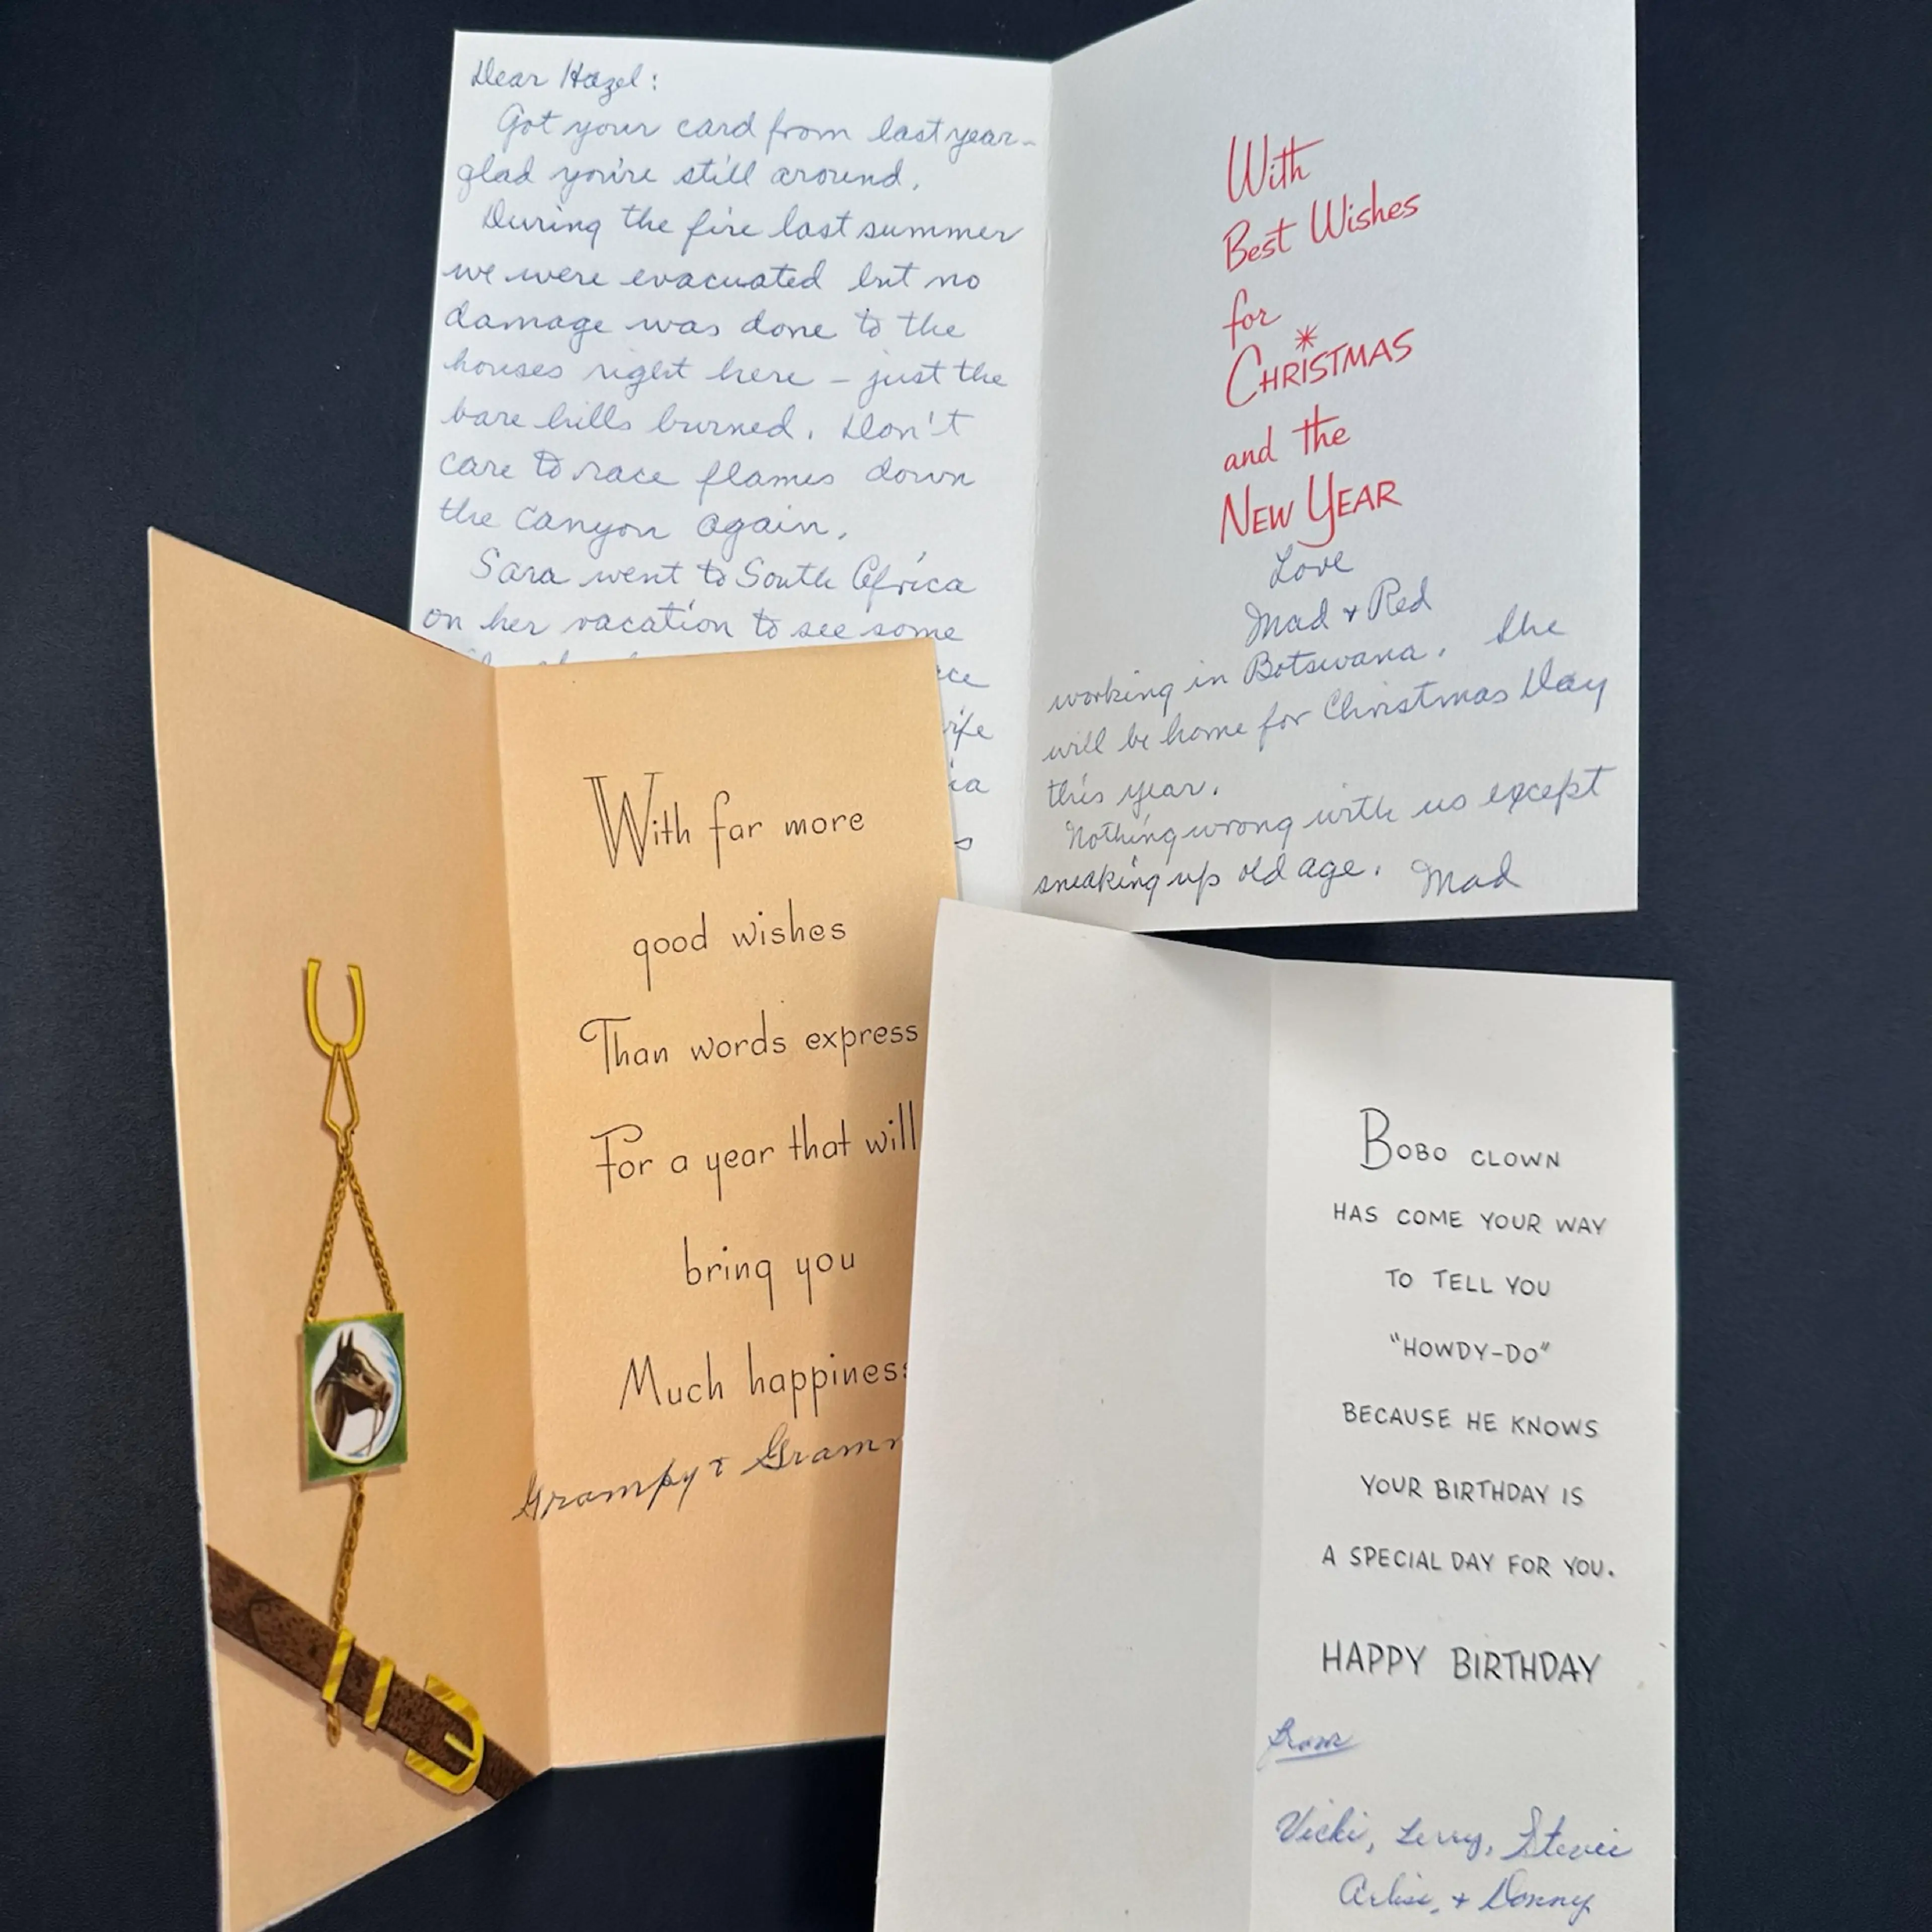 Dear Hazel:
Got your card from last year-
glad you're still around.
During the fire last summer
we were evacuated but no
damage was done to the
houses right here - just the
bare hills burned. Don't
care to race flames down
the canyon again.
Sara went to South Africa
on her vacation to see some
With
Best Wishes
for
CHRISTMAS
and the
NEW YEAR
Love
Mad & Red
working in Botswana. She
will be home for Christmas Day
this year.
Nothing wrong with us except
sneaking up old age. Mad
With far more
good wishes
Than words express
For a year that will
bring you
Much happiness
Grampy &
BOBO CLOWN
HAS COME YOUR WAY
TO TELL YOU
"HOWDY-DO"
BECAUSE HE KNOWS
YOUR BIRTHDAY IS
A SPECIAL DAY FOR YOU.
HAPPY BIRTHDAY
from
Vicki, Stevie
& Donny